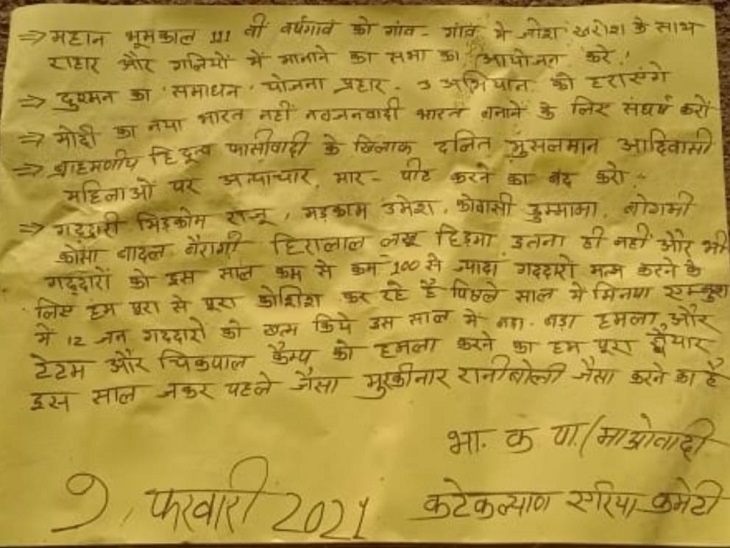 ⇒ महान भूमकाल 111 वी वर्षगांव को गांव - गांव मे जोश खरोश के साथ
शहार और गलियों में मानाने का सभा का आयोजन करे!
⇒ दुश्मन का 'समाधान' योजना प्रहार - 3 अभियान को हरासंगे
⇒ मोदी का नया भारत नहीं नवजनवादी भारत बनाने के लिए संघर्ष करो
⇒ ब्राहमणीय हिदुत्व फासीवादी के खिलाफ दलित मुसलमान आदिवासी
महिलाओं पर अत्याचार, मार - पीट करने का बंद करो -
⇒ गददारी भिड़कोम राजू, मड़काम उमेश, कोवासी डुम्मामा, बोगामी
कोसा बादल बैरागी हिरालाल लखू हिड़मा इतना ही नहीं और भी
गददारों को इस साल कम से कम 100 से ज्यादा गददारो करने के
लिए हम पूरा से पूरा कोशिश कर रहे है पिछले साल मे मिनपा एम्बुश
में 12 जन गददारो को खत्म किये उस साल मे बड़ा - बड़ा हमला और
टेटम और चिकपाल कैम्प को हमला करने का हम पूरा तैयार
इस साल जकर पहले जैसा मुरकीनार रानीबोली जैसा करने का है
भा. क पा. (माओवादी
9, फरवारी 2021 कटेकल्याण एरिया कमेटी